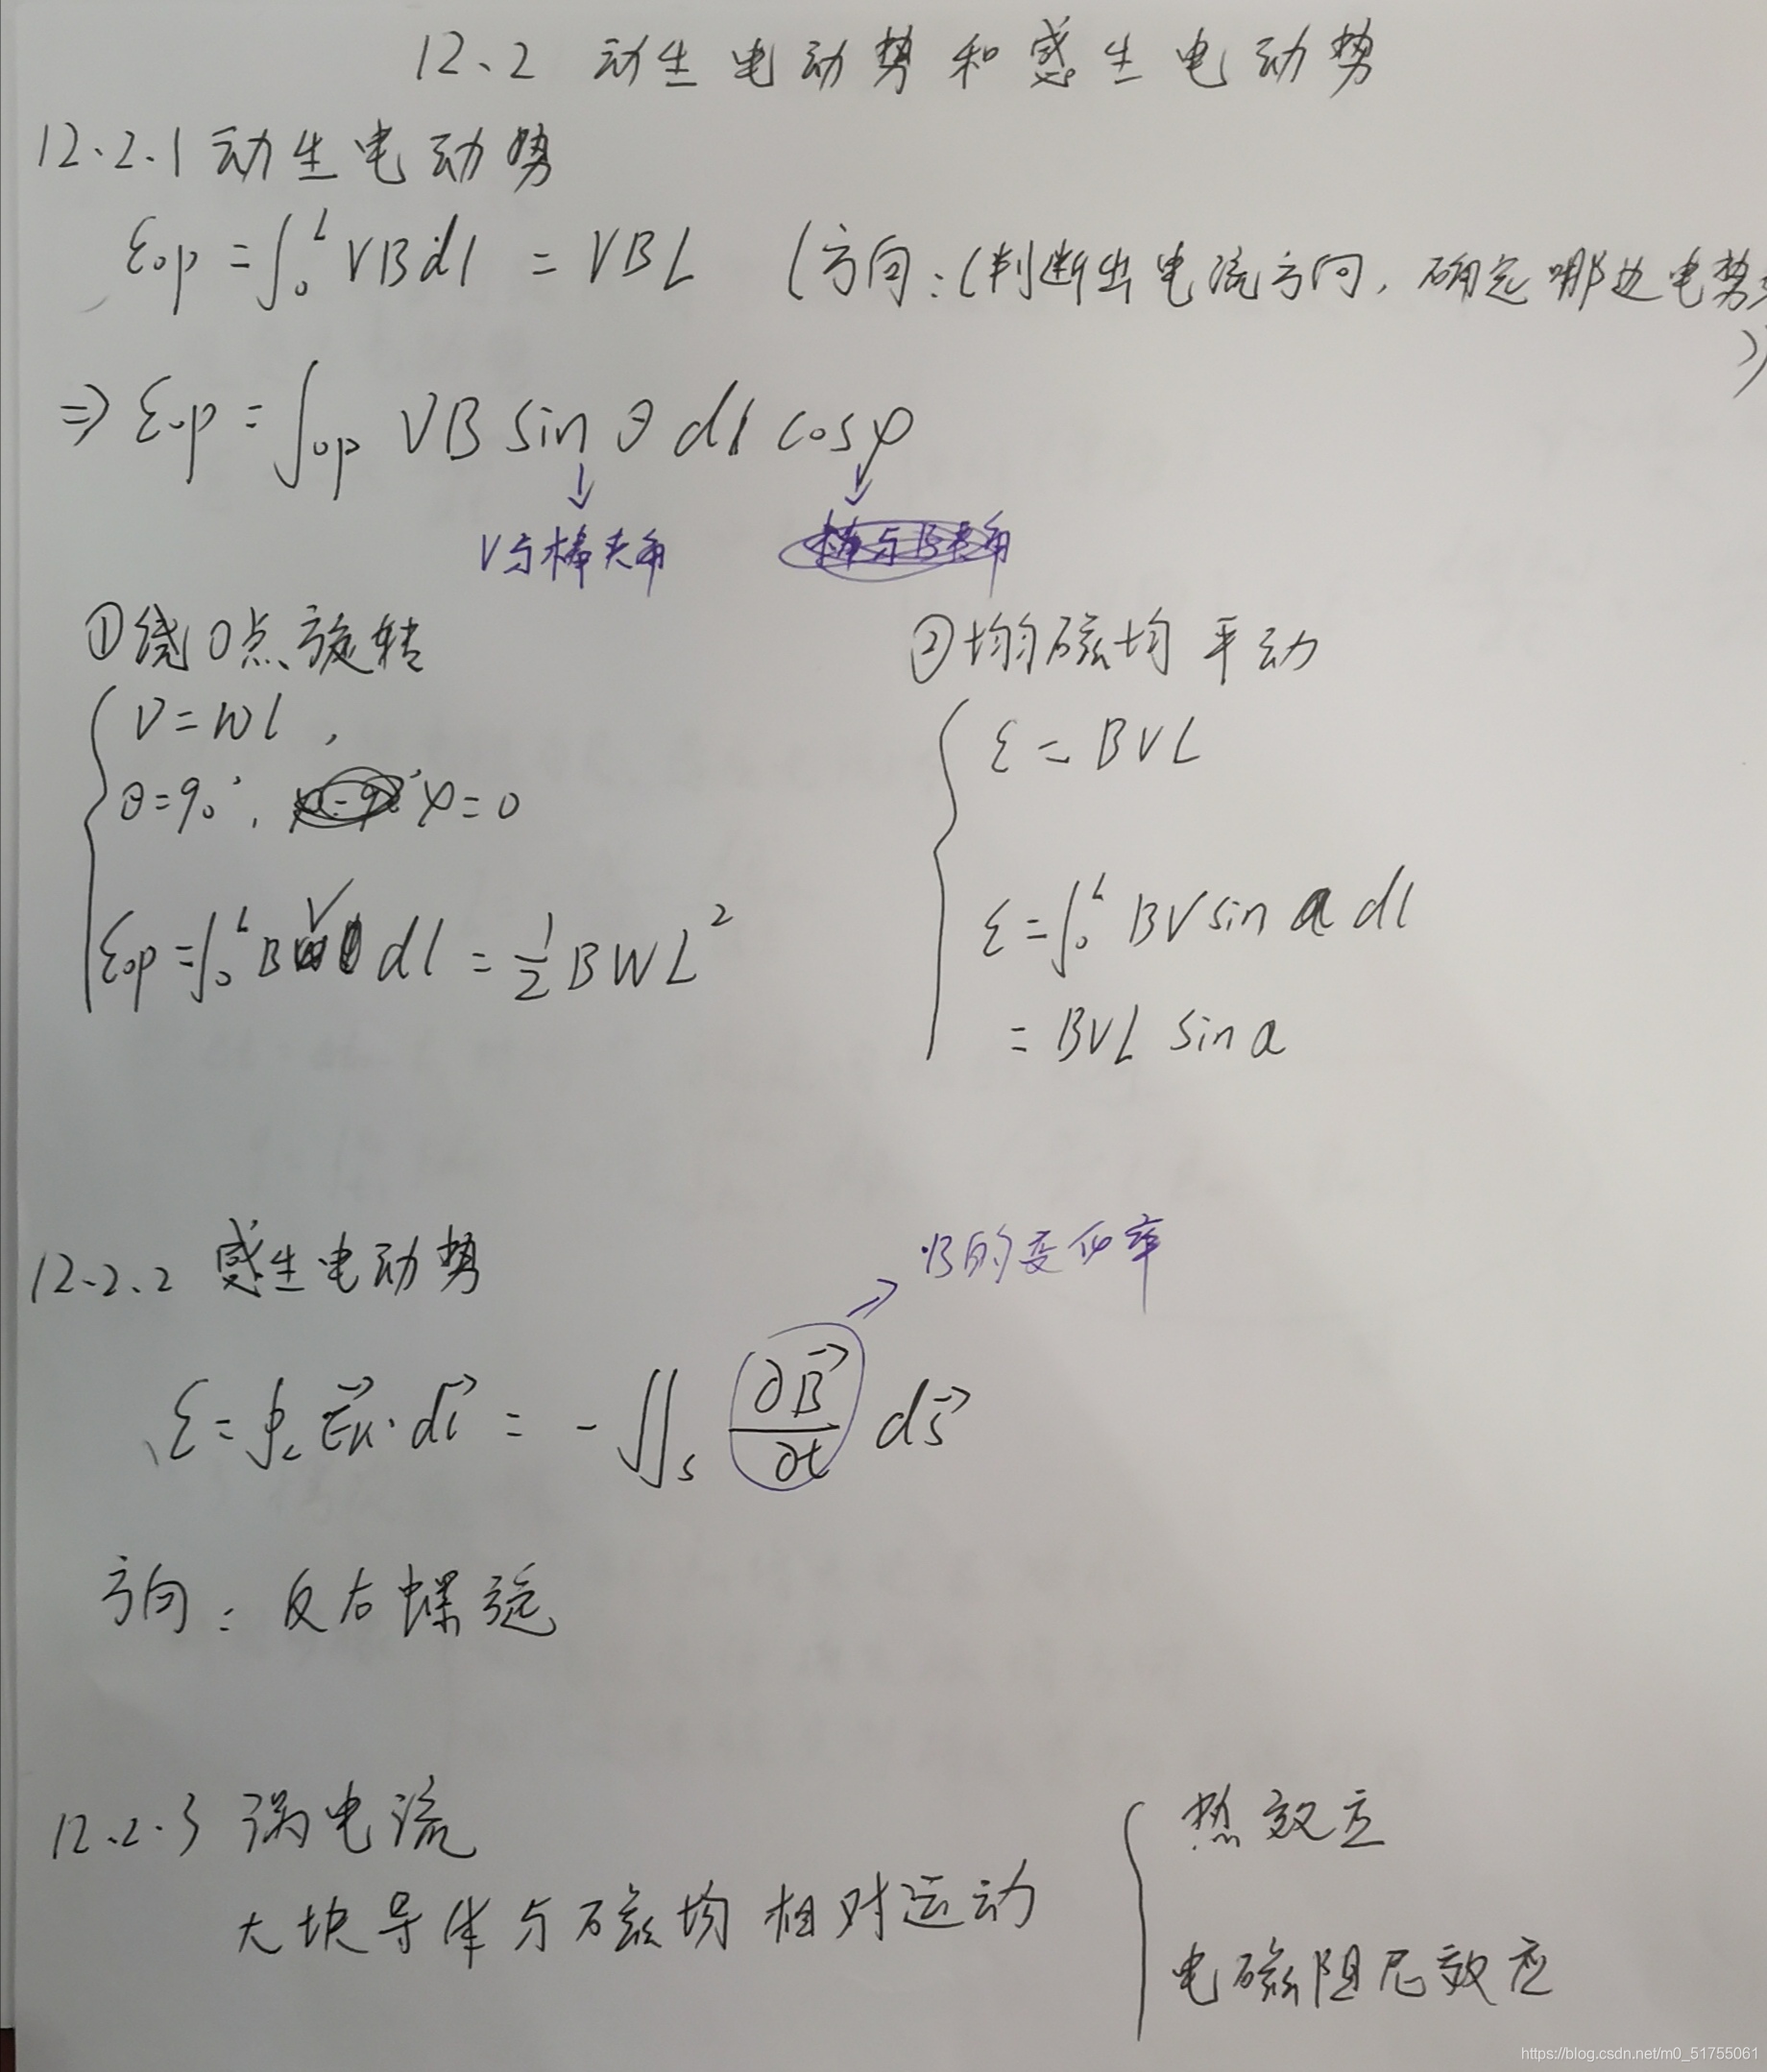 12.2 动生电动势和感生电动势
12.2.1 动生电动势
εop = ∫₀ᴸ VBdl = VBL (方向:(判断出电流方向,确定哪边电势
))
⇒ εop = ∫op VB sinθ dl cosφ
↓ ↓
V与棒夹角 棒与B夹角
①绕O点旋转
V=Wl,
θ=90°, φ=0
εop = ∫₀ᴸ BV dl = 1/2 BWL²
②均匀磁均平动
ε = BVL
ε = ∫₀ᴸ BV sin a dl
= BVL sin a
12.2.2 感生电动势
B的变化率
ε = ∮L E⃗k·dl⃗ = -∬s ∂B⃗/∂t ds⃗
方向:反右螺旋
12.2.3 涡电流
大块导体与磁均相对运动
热效应
电磁阻尼效应
https://blog.csdn.net/m0_51755061